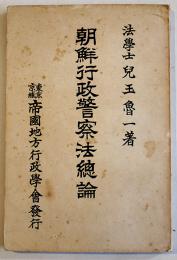 法學士 兒玉魯一著
朝鮮行政警察法總論
東京 京城 帝國地方行政學會發行